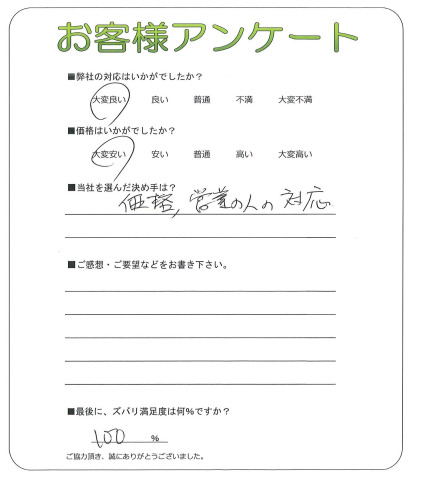 お客様アンケート
■弊社の対応はいかがでしたか？
大変良い 良い 普通 不満 大変不満
■価格はいかがでしたか？
大変安い 安い 普通 高い 大変高い
■当社を選んだ決め手は？
価格，営業の人の対応
■ご感想・ご要望などをお書き下さい。
■最後に、ズバリ満足度は何%ですか？
100 %
ご協力頂き、誠にありがとうございました。